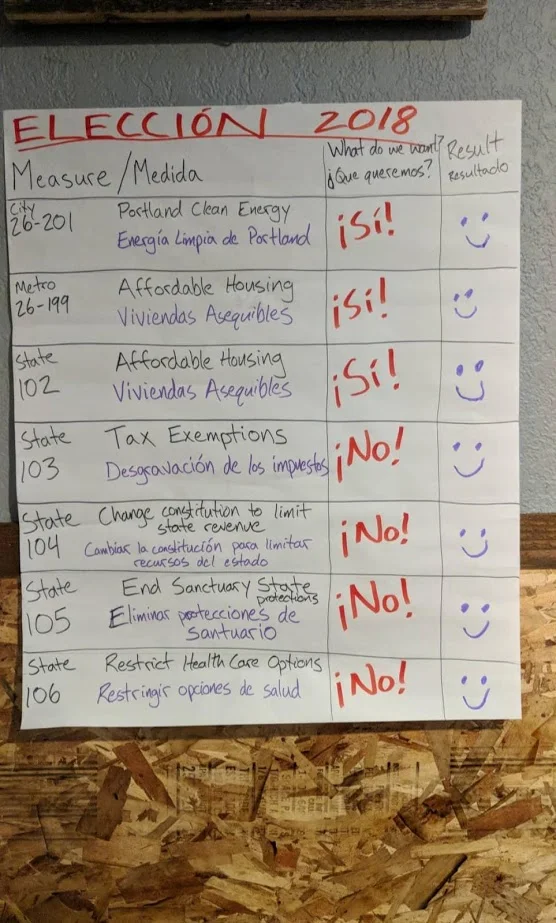 ELECCIÓN 2018
Measure/Medida
What do we want?
¿Que queremos?
Result
resultado
City
26-201
Portland Clean Energy
Energía Limpia de Portland
¡Sí!
Metro
26-199
Affordable Housing
Viviendas Asequibles
¡Sí!
State
102
Affordable Housing
Viviendas Asequibles
¡Sí!
State
103
Tax Exemptions
Desgravación de los impuestos
¡No!
State
104
Change constitution to limit
state revenue
Cambiar la constitución para limitar
recursos del estado
¡No!
State
105
End Sanctuary State
protections
Eliminar protecciones de
santuario
¡No!
State
106
Restrict Health Care Options
Restringir opciones de salud
¡No!